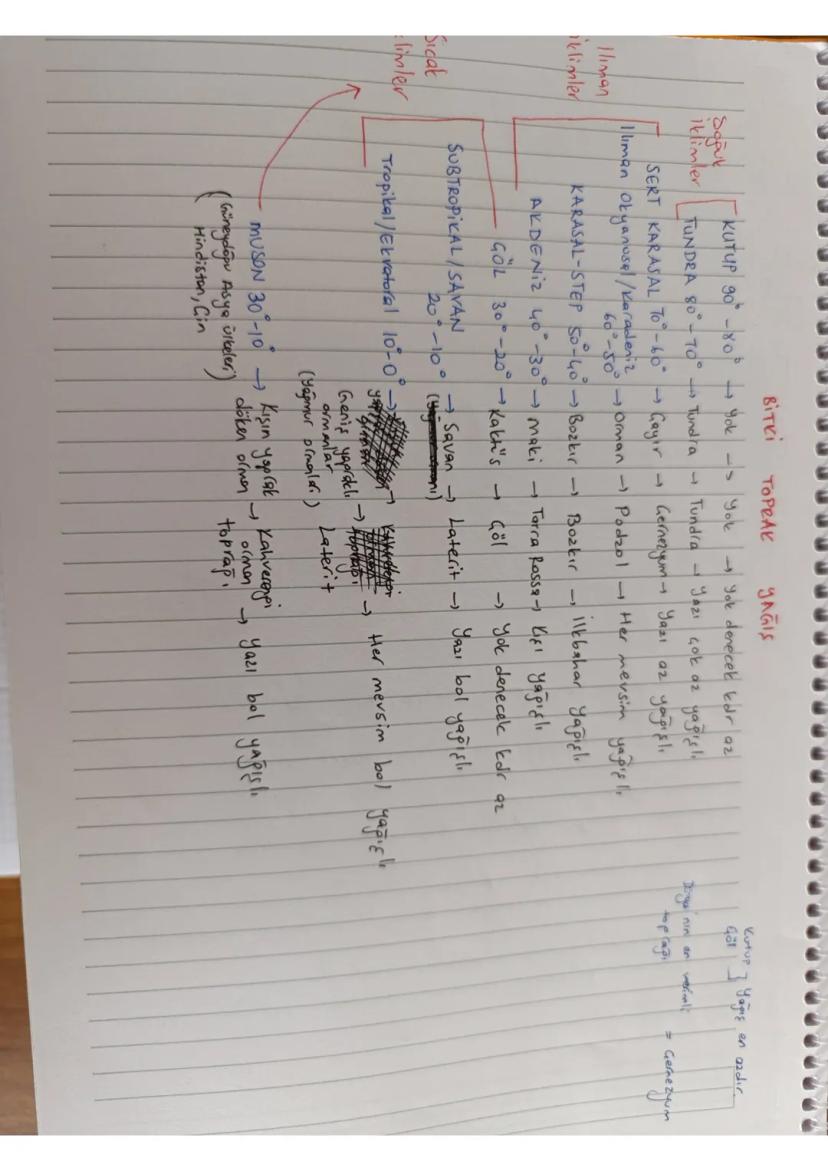 BİTKİ TOPRAK YAĞIŞ
Soğuk
iklimler
KUTUP 90° -80° → Yok → Yok → Yok denecek kdr az
TUNDRA 80° -70° → Tundra → Tundra → Yazı çok az yağışlı
Ilıman
iklimler
SERT KARASAL 70° -60° → Çayır → Çernezyum → Yazı az yağışlı
Ilıman Okyanusal/Karadeniz
60° -50° → Orman → Podzol → Her mevsim yağışlı
KARASAL-STEP 50° -40° → Bozkır → Bozkır → İlkbahar yağışlı
AKDENİZ 40° -30° → Maki → Torra Rossa → Kışı yağışlı
Sıcak
iklimler
ÇÖL 30° -20° → Kaktüs → Çöl → Yok denecek kdr az
SUBTROPİKAL/SAVAN
20° -10° → Savan → Laterit → Yazı bol yağışlı
Tropikal/Ekvatoral 10° -0° → Her mevsim bol yağışlı
Geniş yapraklı → Laterit
ormanlar
(yağmur ormanları)
MUSON 30° -10° → Kışın yaprak → Kahverengi
döken orman orman → Yazı bol yağışlı
toprağı
(Güneydoğu Asya ülkeleri,
Hindistan, Çin
Kutup
Çöl } Yağış en azdır.
Dünya'nın en verimli
toprağı = Çernezyum